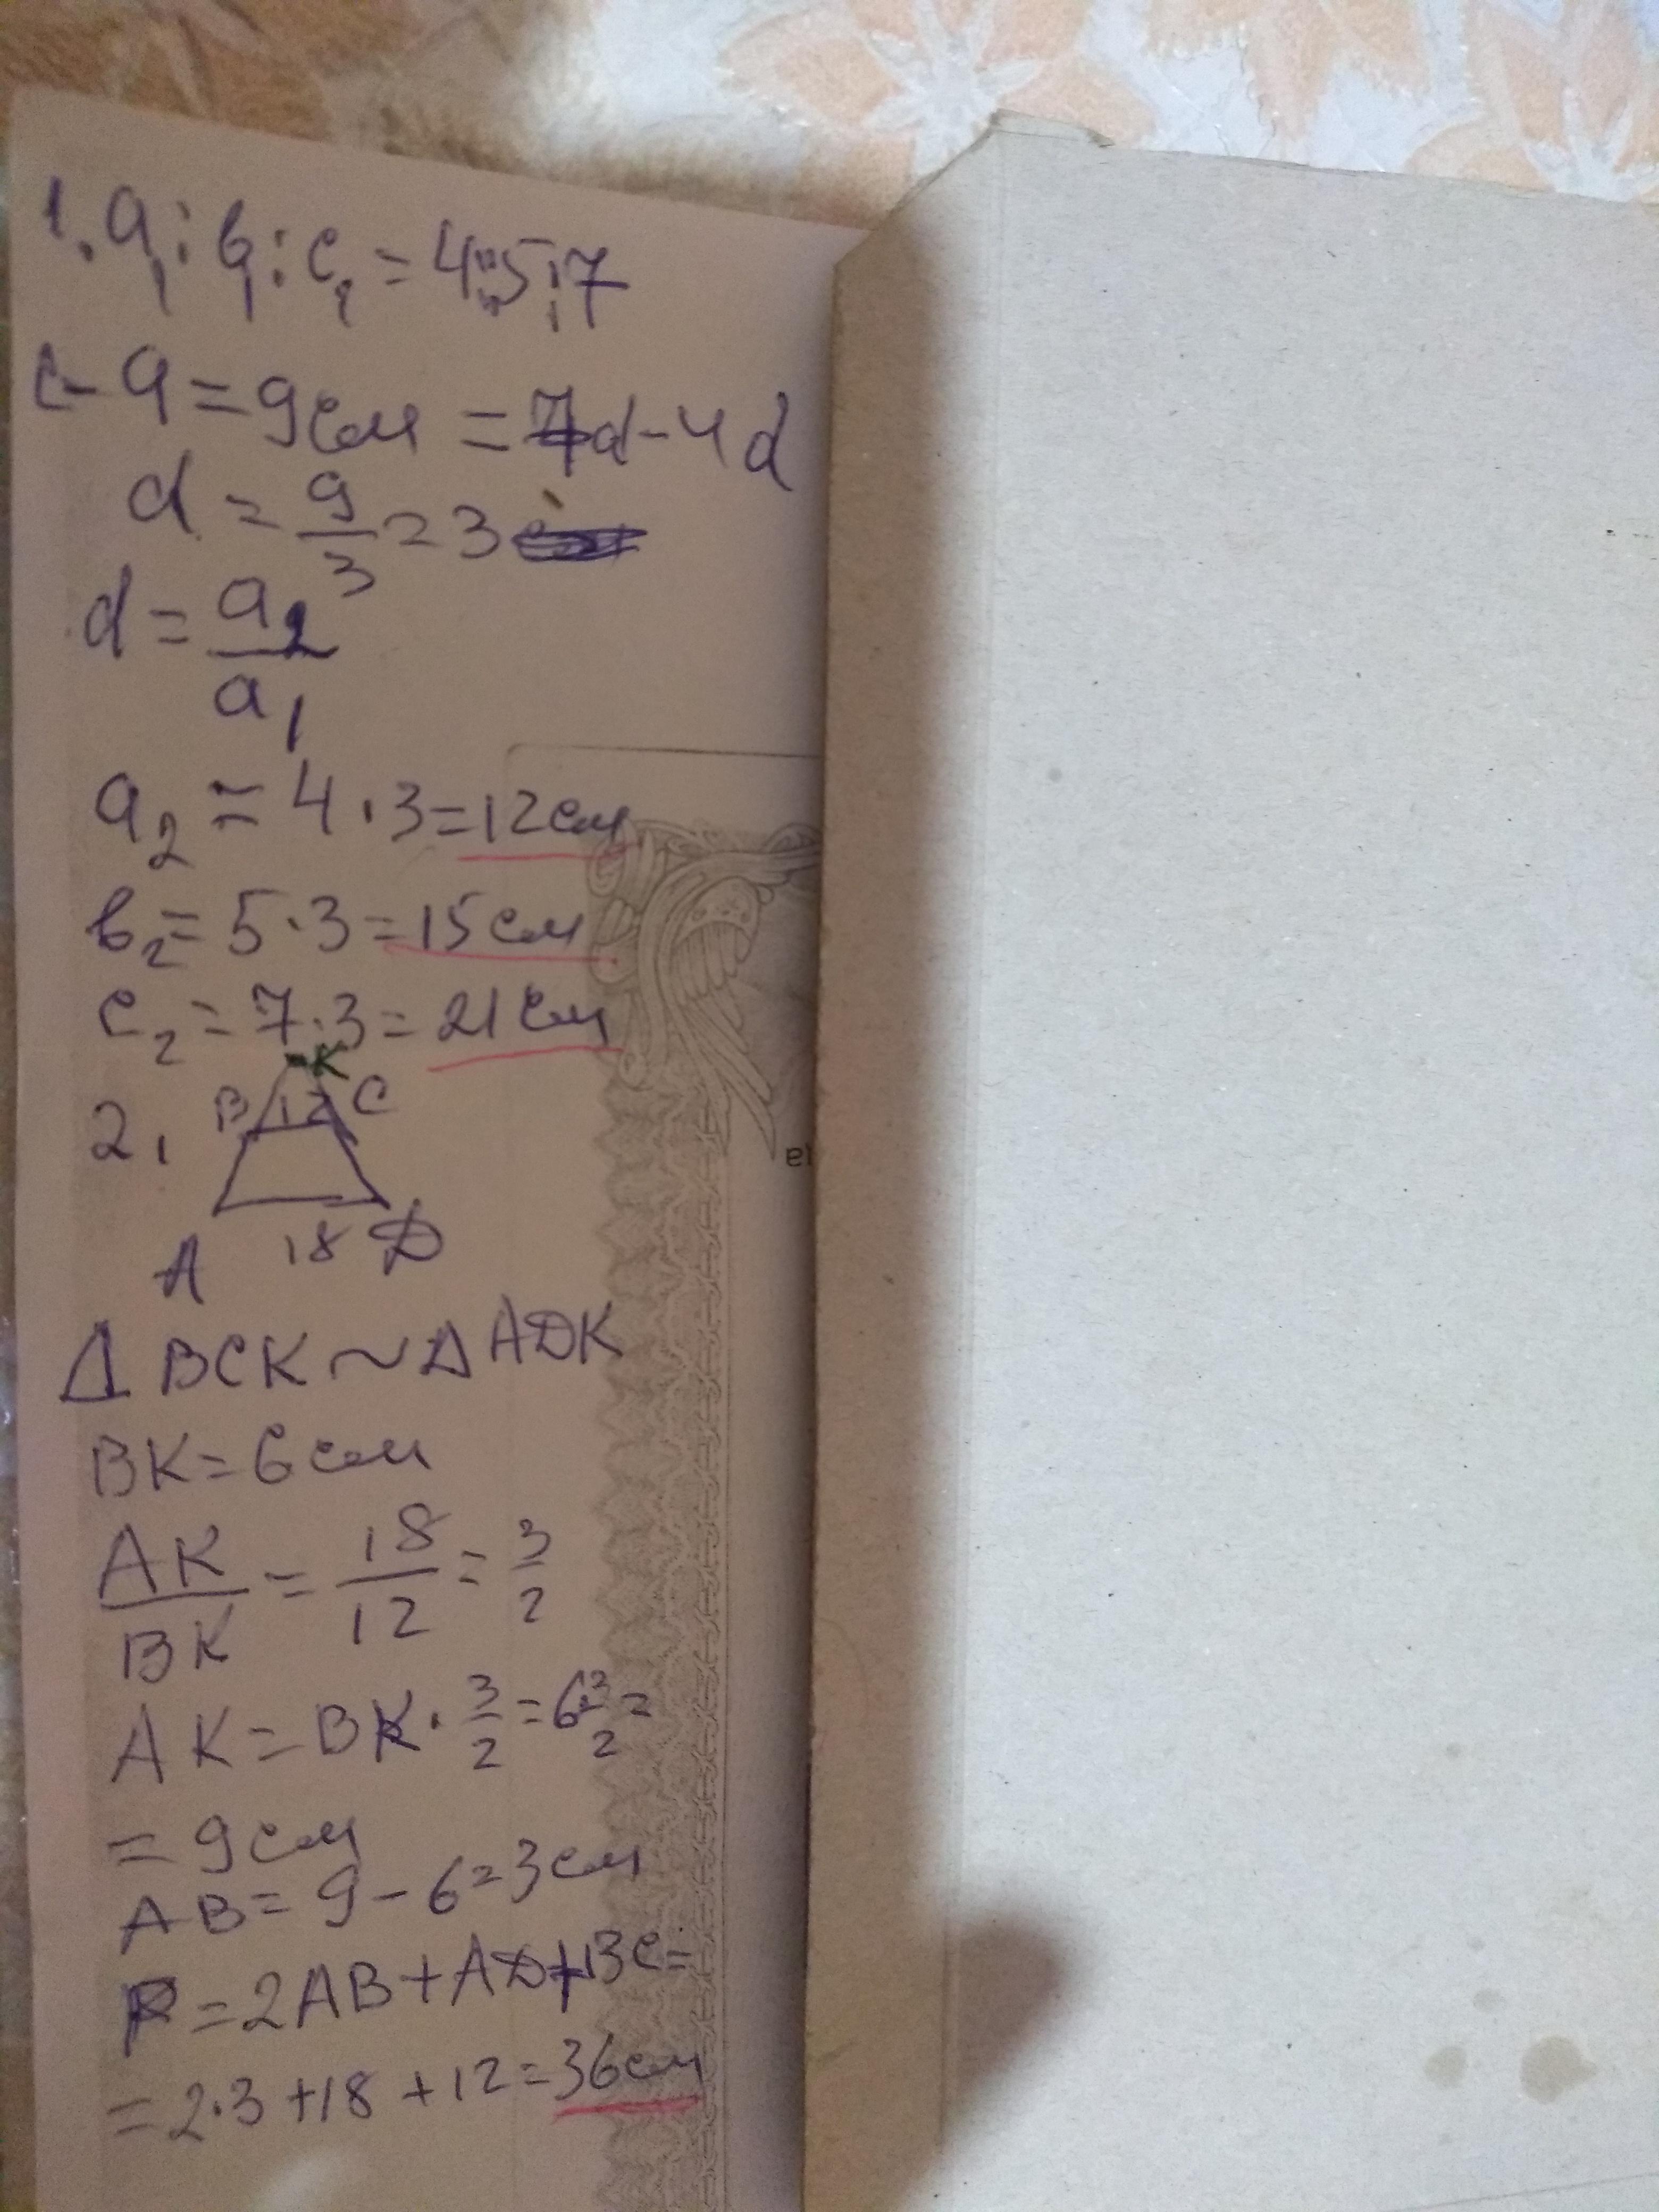 1. a₁ : b₁ : c₁ = 4:5:7
c - a = 9см = 7d - 4d
d = 9/3 = 3
d = a₂/a₁
a₂ = 4 · 3 = 12см
b₂ = 5 · 3 = 15см
c₂ = 7 · 3 = 21см
K
2, B 12 C
A 18 D
Δ BCK ~ Δ ADK
BK = 6см
AK/BK = 18/12 = 3/2
AK = BK · 3/2 = 6 · 3/2 =
= 9см
AB = 9 - 6 = 3см
P = 2AB + AD + BC =
= 2·3 + 18 + 12 = 36см